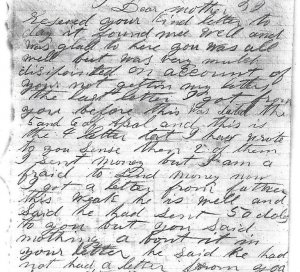 Dear mother
Received your kind letter to
day it found me well and
was glad to here you was all
well but was very much
disipointed on account of
your not getting my letter
the last letter I got from
you before this was dated the
2and of and this is
the letter that I hav rote
to you sense then 2 of them
I sent money but I am a
fraid to send money now
I got a letter from father
this weak he is well and
said he had sent 50 dols
to you but you said
nothing a bout it in
your letter he said he had
not had a letter from